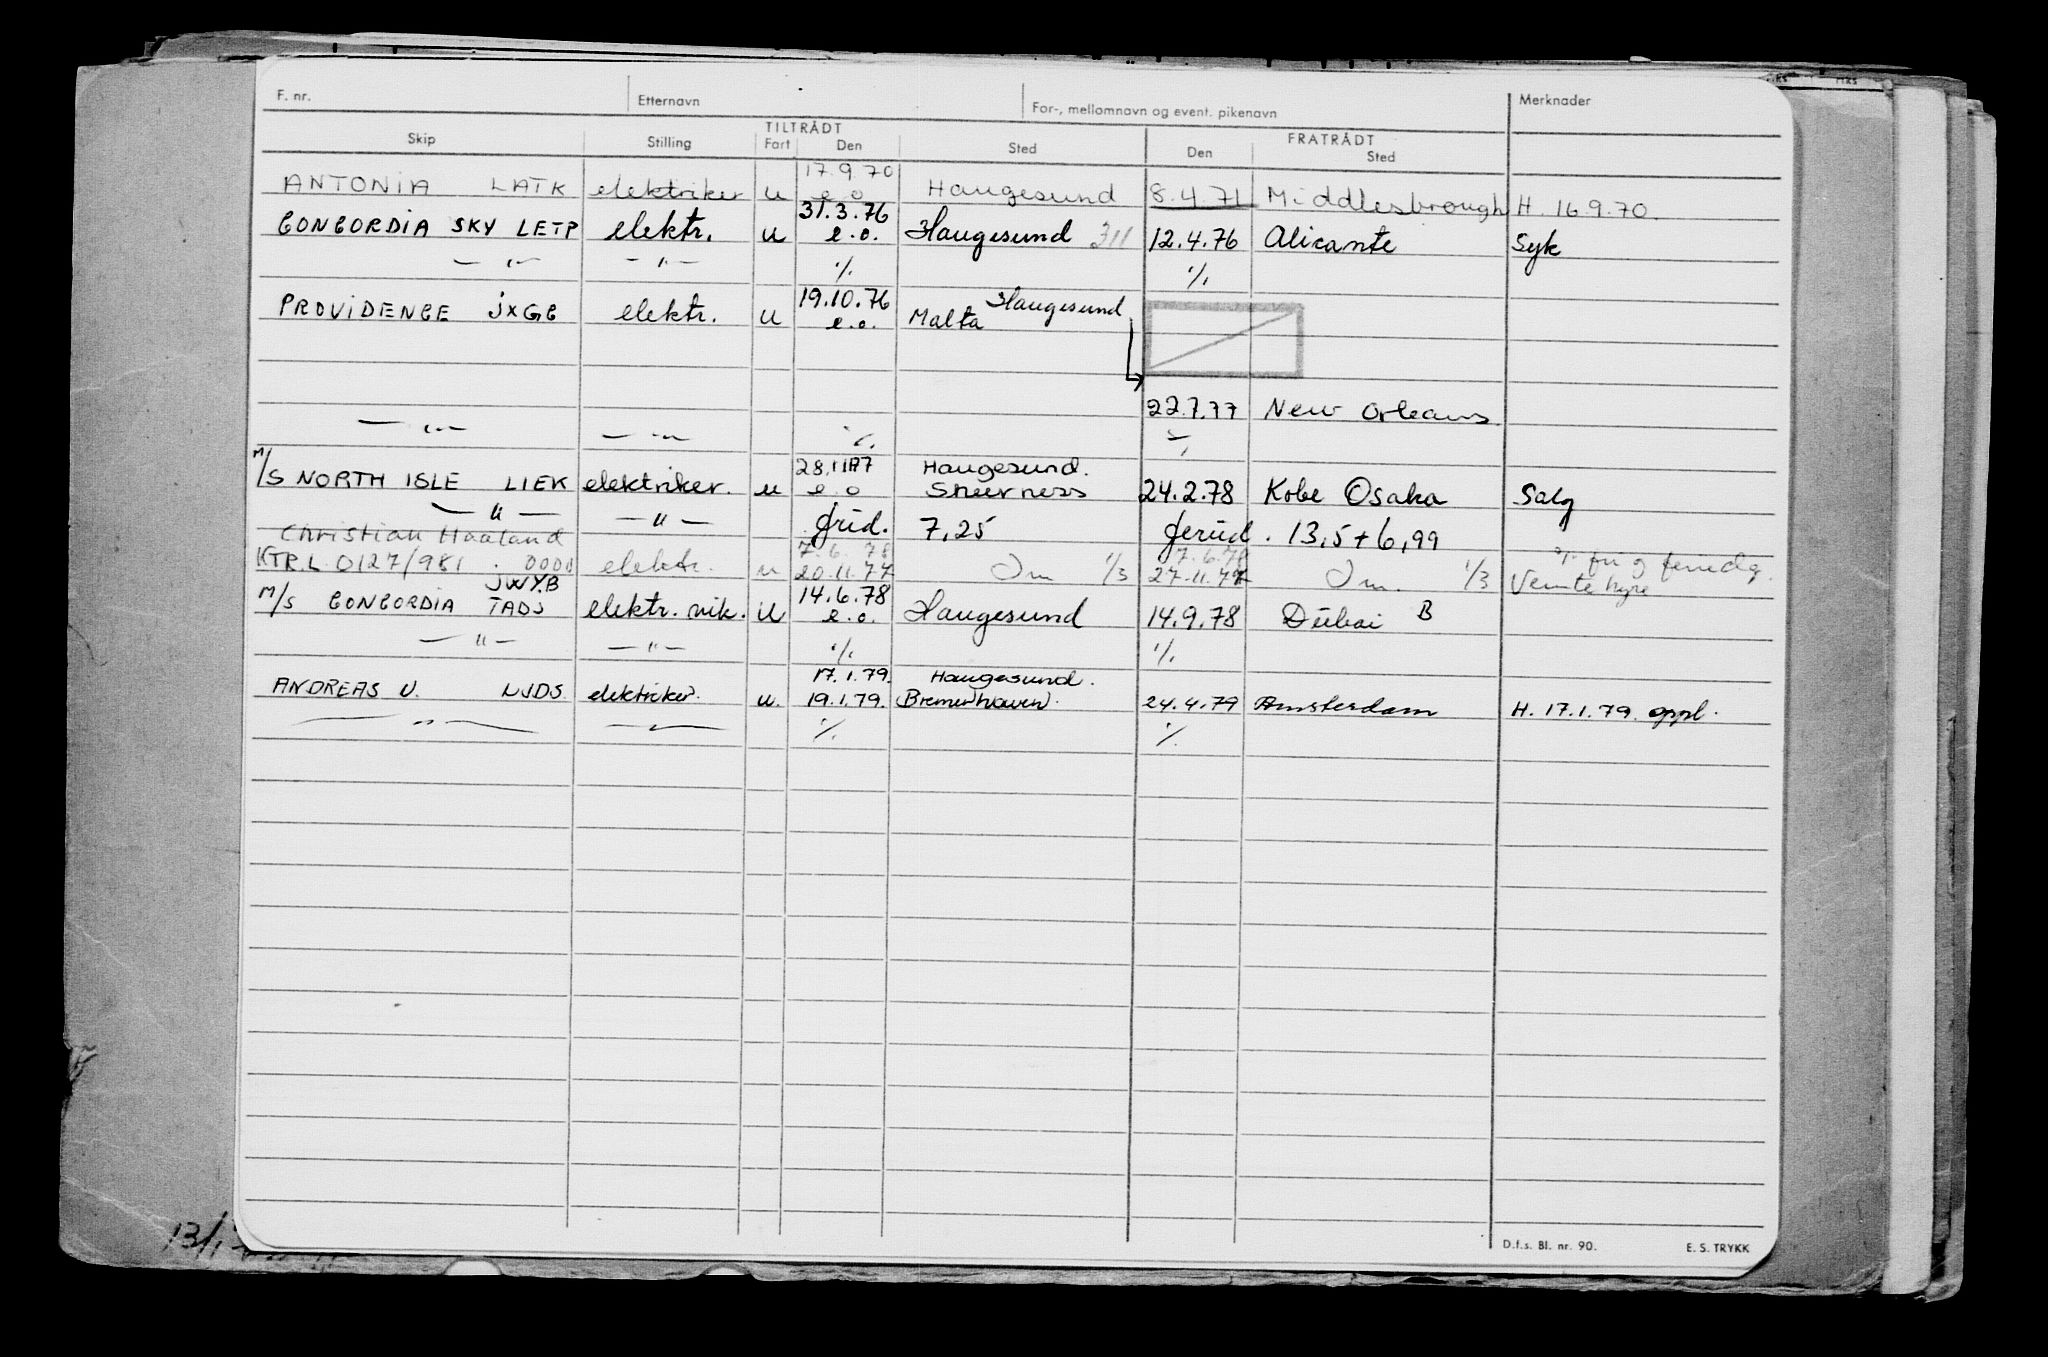 F. nr. Etternavn For-, mellomnavn og event. pikenavn Merknader
TILTRÅDT FRATRÅDT
Skip Stilling Fart Den Sted Den Sted
17.9.70
ANTONIA LATK elektriker u e.o Haugesund 8.4.71 Middlesbrough H. 16.9.70.
31.3.76
CONCORDIA SKY LETP elektr. u e.o. Haugesund 311 12.4.76 Alicante Syk
— " — — " — ./. ./.
19.10.76 Haugesund
PROVIDENCE JXGC elektr. u e.o. Malta
22.7.77 New Orleans
— " — — " — ./. ./.
28.11.77 Haugesund.
M/S NORTH ISLE LIEK elektriker. u e.o Sheerness 24.2.78 Kobe Osaka Salg
— " — — " — frid. 7,25 feriid. 13,5+6,99
Christian Haaland 7.6.78 7.6.78
KTR.L 0127/981 . 0000 elektr. u 20.11.77 1/3 27.11.77 1/3 Vente hyre
JWYB 14.6.78
M/S CONCORDIA TADJ elektr. vik. u e.o. Haugesund 14.9.78 Dubai B
— " — — " — ./. ./.
17.1.79. Haugesund.
ANDREAS U. LJDS elektriker. u. 19.1.79. Bremerhaven. 24.4.79 Amsterdam H. 17.1.79. oppl.
— " — — " — ./. ./.
D.f.s. Bl. nr. 90. E. S. TRYKK